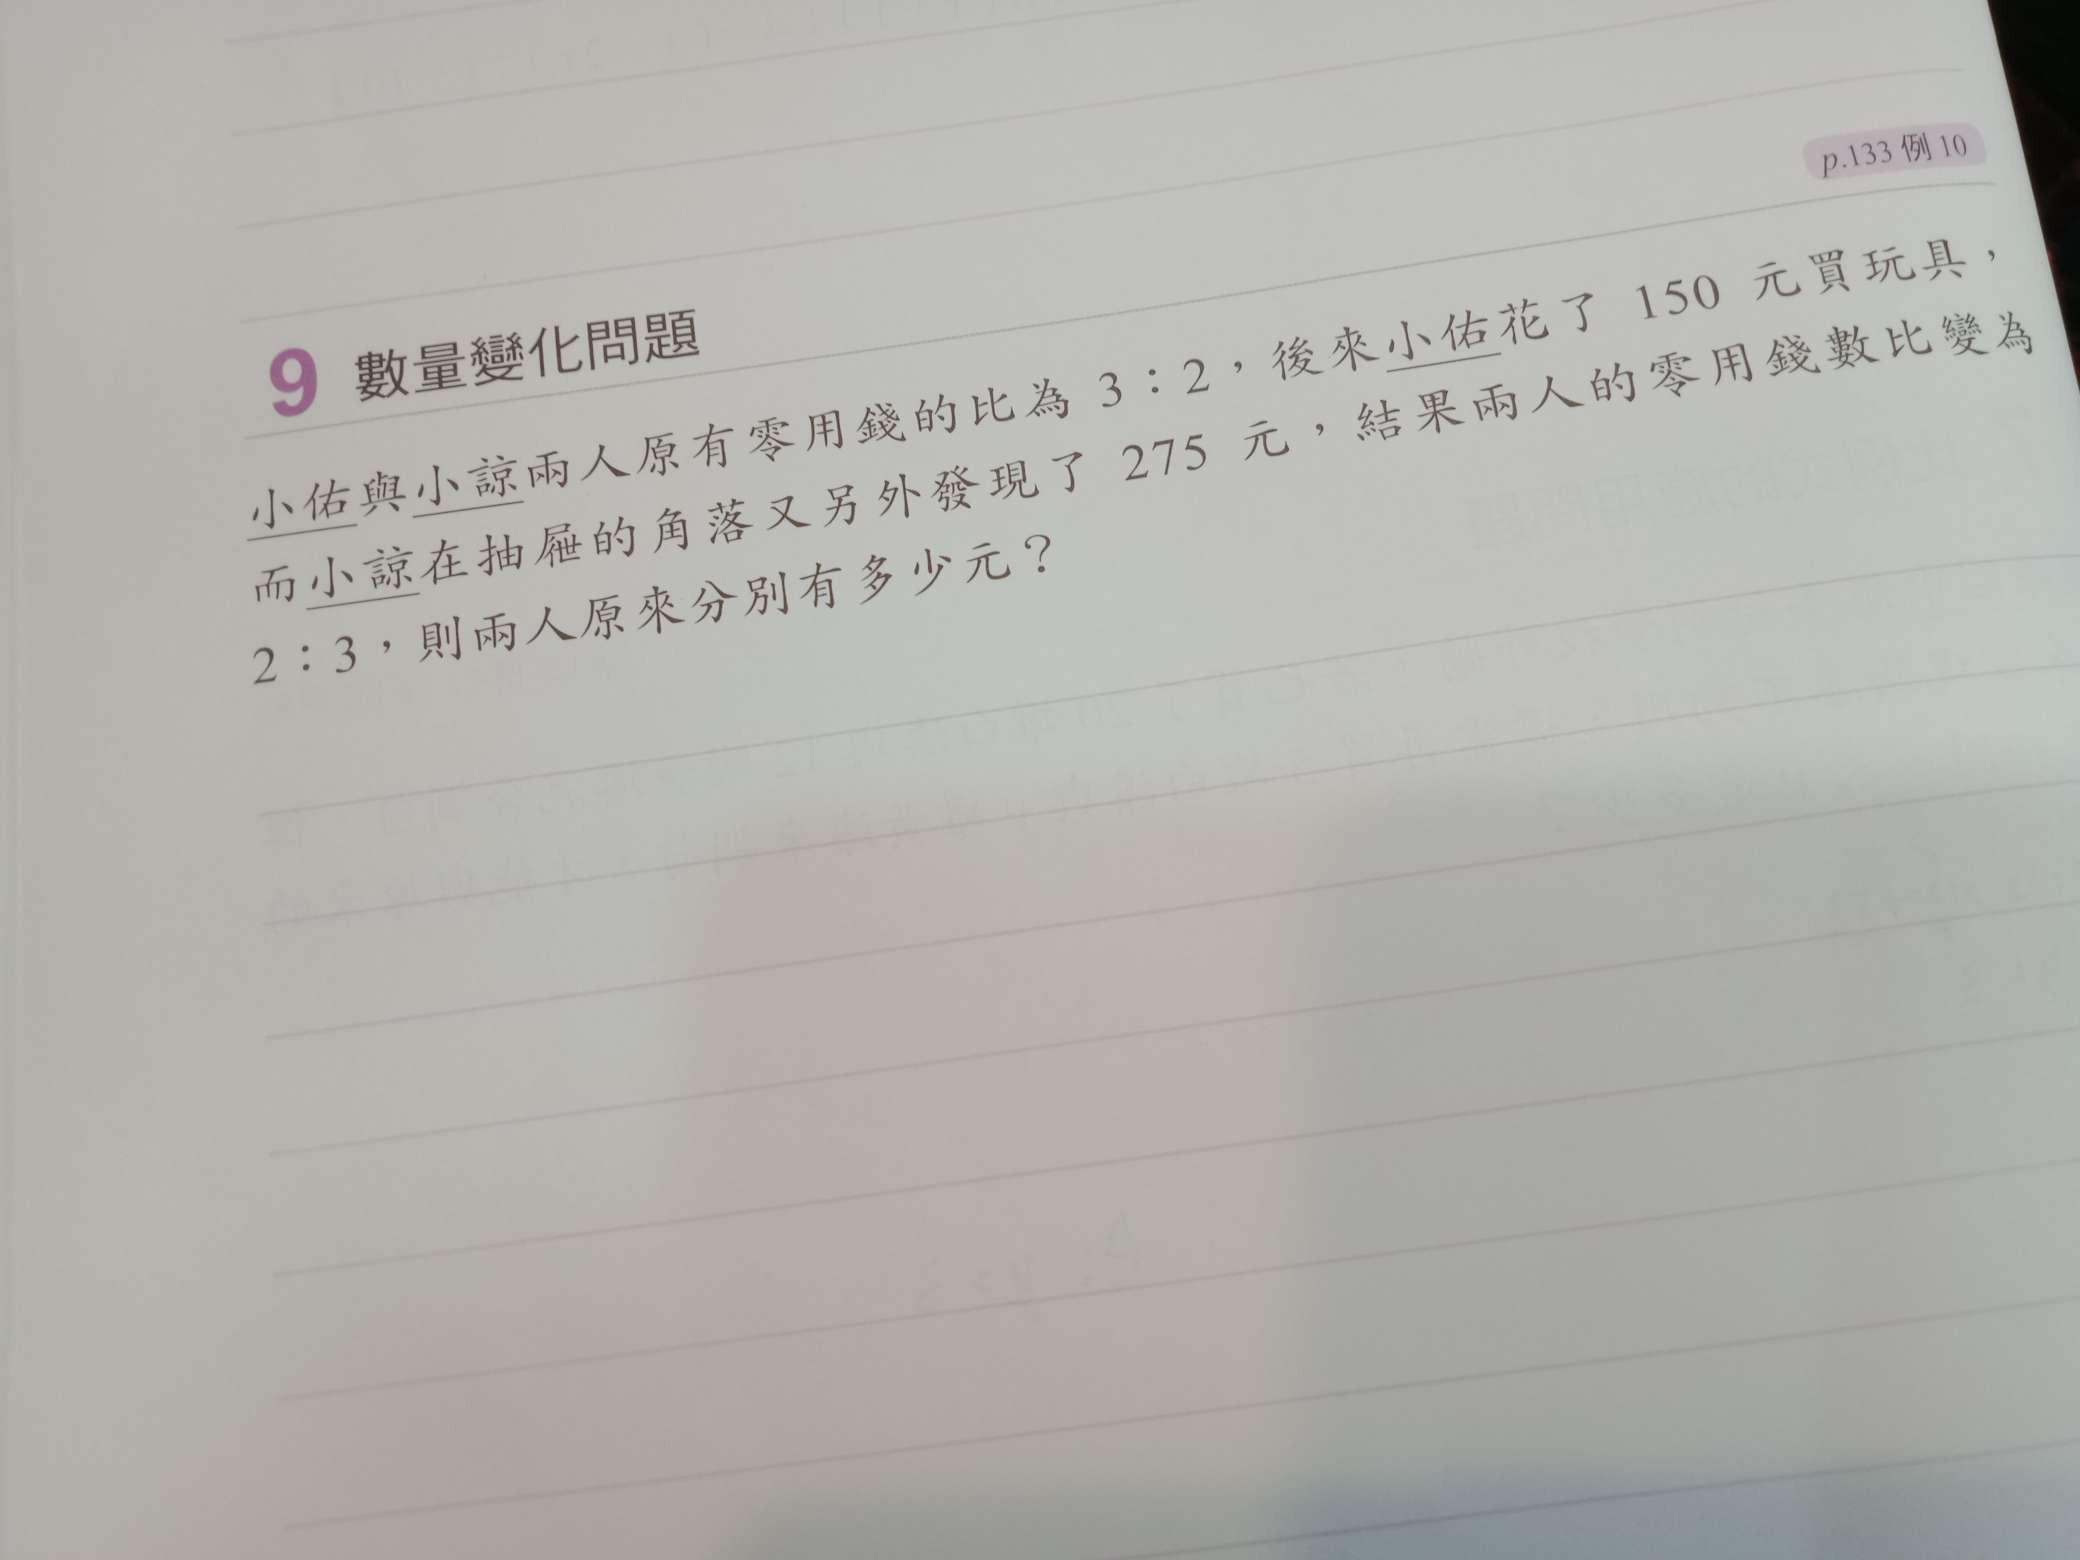 p.133 例 10
9 數量變化問題
小佑與小諒兩人原有零用錢的比為 3：2，後來小佑花了 150 元買玩具，
而小諒在抽屜的角落又另外發現了 275 元，結果兩人的零用錢數比變為
2：3，則兩人原來分別有多少元？